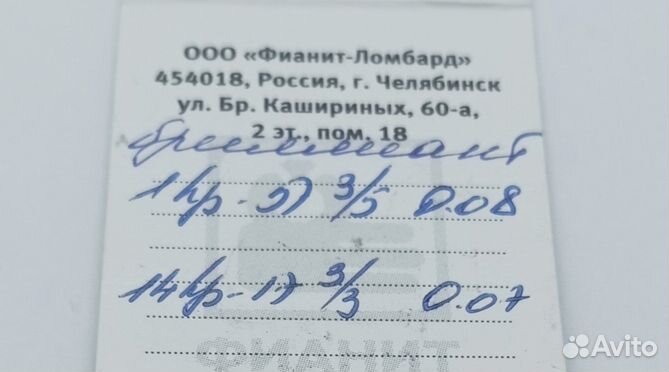 ООО «Фианит-Ломбард»
454018, Россия, г. Челябинск
ул. Бр. Кашириных, 60-а,
2 эт., пом. 18
бриллиант
1 Кр-57 3/5 0.08
14 Кр-17 3/3 0.07
ФИАНИТ
Avito